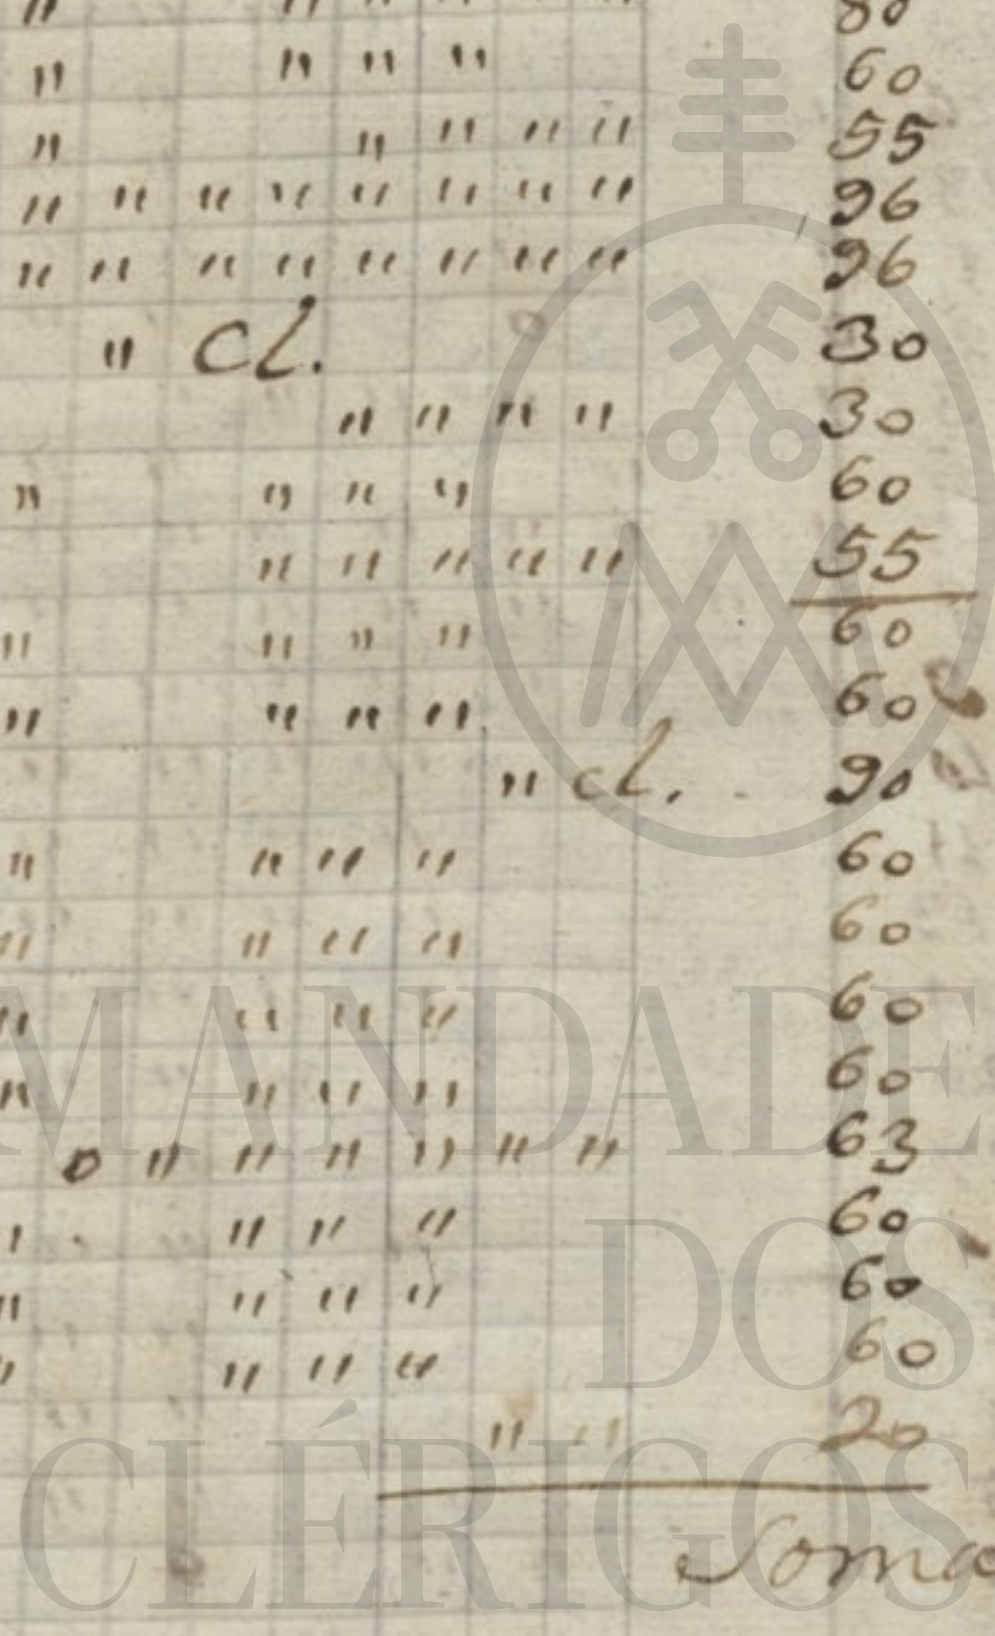 " " " " " " 80
" " " " 60
" " " " " 55
" " " " " " " " 96
" " " " " " " " 96
" cl. 30
" " " " 30
" " " " 60
" " " " " 55
" " " " 60
" " " " 60
" cl. 90
" " " " 60
" " " " 60
" " " " 60
" " " " 60
o " " " " " " 63
" " " " 60
" " " " 60
" " " " 60
" " 20
Soma
MANDADE
DOS
CLÉRIGOS